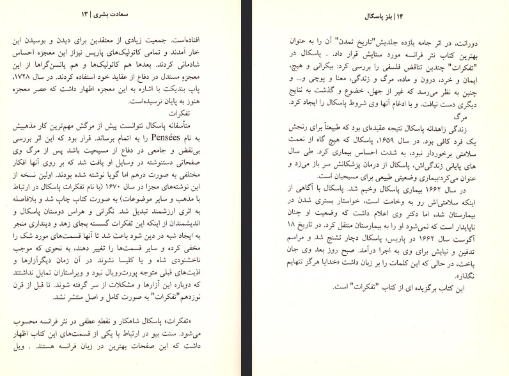 سعادت بشری | ۱۳
افتاده‌است. جمعیت زیادی از معتقدین برای دیدن و بوسیدن این
خار آمدند و تمامی کاتولیک‌های پاریس نیز از این معجزه احساس
شادمانی کردند. بعدها هم کاتولیک‌ها و هم یانسن‌گراها از این
معجزه مستدل در دفاع از عقاید خود استفاده کردند. در سال ۱۷۲۸،
پاپ بندیکت با اشاره به این معجزه اظهار داشت که عصر معجزه
هنوز به پایان نرسیده‌است.
تفکرات
متأسفانه پاسکال نتوانست پیش از مرگ مهم‌ترین کار مذهبیش
به نام Pensées را به اتمام برساند. قرار بود که این اثر بررسی
بی‌نقص و جامعی در دفاع از مسیحیت باشد پس از مرگ وی
صفحاتی دستنوشته در وسایل او یافت شد که بر روی آنها افکار
مختلفی به صورت درهم اما گویا نوشته شده بودند. اولین نسخه از
این نوشته‌های مجزا در سال ۱۶۷۰ (با نام تفکرات پاسکال در ارتباط
با مذهب و سایر موضوعات) به صورت کتاب چاپ شد و بلافاصله
به اثری ارزشمند تبدیل شد. نگرانی و هراس دوستان پاسکال و
اندیشمندان از اینکه این تفکرات گسسته بجای زهد و دینداری منجر
به ایجاد شبه در دین شود باعث شد تا آنها قسمت‌های مورد شک را
مخفی کرده و سایر قسمت‌ها را تغییر دهند، به نحوی که موجب
ناخشنودی شاه و یا کلیسا نشوند در آن زمان دیگر آزارها و
اذیت‌های قبلی متوجه پورت‌رویال نبود و ویراستاران تمایل نداشتند
که درباره این آزارها و مشکلات از سر گرفته شوند. تا قبل از قرن
نوزدهم "تفکرات" به صورت کامل و اصل منتشر نشد.
«تفکرات» پاسکال شاهکار و نقطه عطفی در نثر فرانسه محسوب
می‌شود. سنت بیو در ارتباط با یکی از قسمت‌های این کتاب اظهار
داشت که این صفحات بهترین در زبان فرانسه هستند . ویل
۱۴ | بلز پاسگال
دورانت، در اثر جامه یازده جلدیش"تاریخ تمدن" آن را به عنوان
بهترین کتاب نثر فرانسه مورد ستایش قرار داد. . پاسکال در
"تفکرات" چندین تناقض فلسفی را بررسی کرد: بیکرانی و هیچ،
ایمان و خرد، درون و ماده، مرگ و زندگی، معنا و پوچی و... و
چنین به نظر می‌رسد که غیر از جهل، خضوع و گذشت به نتایج
دیگری دست نیافت. و با ادغام آنها وی شروط پاسکال را ایجاد کرد.
مرگ
زندگی زاهدانه پاسکال نتیجه عقیده‌ای بود که طبیعتاً برای رنجش
یک فرد کافی بود. در سال ۱۶۵۹، پاسکال که هیچ گاه از نعمت
سلامتی برخوردار نبود، به شدت احساس بیماری کرد. طی سال
های پایانی زندگی‌اش، پاسکال از درمان پزشکانش سر باز می‌زد و
عنوان می‌کرد:بیماری وضعیتی طبیعی برای مسیحیان است.
در سال ۱۶۶۲ بیماری پاسکال وخیم شد. پاسکال با آگاهی از
اینکه سلامتی‌اش رو به وخامت است، خواستار بستری شدن در
بیمارستان شده اما دکتر وی اعلام داشت که وضعیت او چنان
ناپایدار است که نمی‌شود او را به بیمارستان منتقل کرد. در تاریخ ۱۸
آگوست سال ۱۶۶۲ در پاریس، پاسکال دچار تشنج شد و مراسم
تدفین و نیایش برای وی به اجرا درآمد. صبح روز بعد وی جان
باخت، در حالی که این کلمات را بر زبان داشت «خدایا هرگز تنهایم
نگذار»
این کتاب برگزیده ای از کتاب "تفکرات" است.